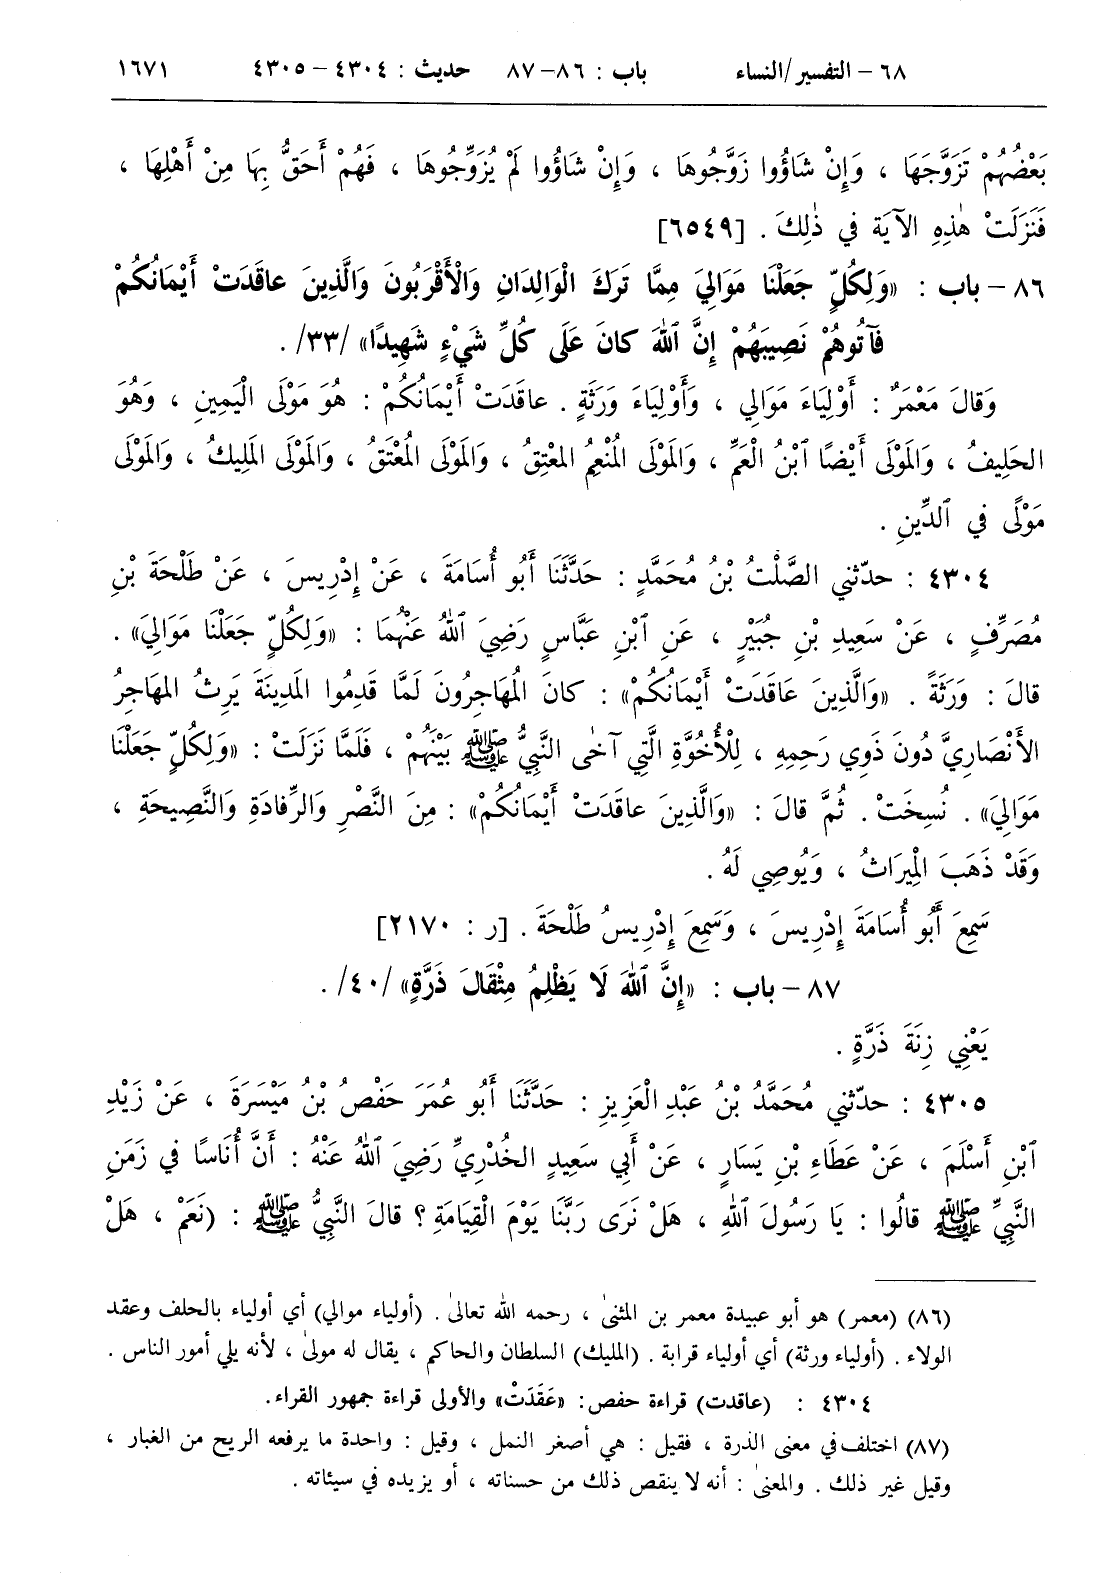 ٦٨ – التفسير/النساء باب : ٨٦–٨٧ حديث : ٤٣٠٤ – ٤٣٠٥ ١٦٧١
بَعْضُهُمْ تَزَوَّجَهَا ، وَإِنْ شَاؤُوا زَوَّجُوهَا ، وَإِنْ شَاؤُوا لَمْ يُزَوِّجُوهَا ، فَهُمْ أَحَقُّ بِهَا مِنْ أَهْلِهَا ،
فَنَزَلَتْ هٰذِهِ الآيَة في ذٰلِكَ . [٦٥٤٩]
٨٦ – باب : «وَلِكُلٍّ جَعَلْنَا مَوَالِيَ مِمَّا تَرَكَ الْوَالِدَانِ وَالْأَقْرَبُونَ وَالَّذِينَ عاقَدَتْ أَيْمَانُكُمْ
فَآتُوهُمْ نَصِيبَهُمْ إِنَّ ٱللهَ كانَ عَلَى كُلِّ شَيْءٍ شَهِيدًا» /٣٣/ .
وَقالَ مَعْمَرٌ : أَوْلِيَاءَ مَوَالِي ، وَأَوْلِيَاءَ وَرَثَةٍ . عاقَدَتْ أَيْمَانُكُمْ : هُوَ مَوْلَى الْيَمِينِ ، وَهُوَ
الحَلِيفُ ، وَالمَوْلَى أَيْضًا ٱبْنُ الْعَمِّ ، وَالمَوْلَى المُنْعِمُ المعْتِقُ ، وَالمَوْلَى المُعْتَقُ ، وَالمَوْلَى المَلِيكُ ، وَالمَوْلَى
مَوْلًى في ٱلدِّينِ .
٤٣٠٤ : حدّثني الصَّلْتُ بْنُ مُحَمَّدٍ : حَدَّثَنَا أَبُو أُسَامَةَ ، عَنْ إِدْرِيسَ ، عَنْ طَلْحَةَ بْنِ
مُصَرِّفٍ ، عَنْ سَعِيدِ بْنِ جُبَيْرٍ ، عَنِ ٱبْنِ عَبَّاسٍ رَضِيَ ٱللهُ عَنْهُمَا : «وَلِكُلٍّ جَعَلْنَا مَوَالِيَ» .
قالَ : وَرَثَةً . «وَالَّذِينَ عَاقَدَتْ أَيْمَانُكُمْ» : كانَ المُهَاجِرُونَ لَمَّا قَدِمُوا المَدِينَةَ يَرِثُ المهَاجِرُ
الأَنْصَارِيَّ دُونَ ذَوِي رَحِمِهِ ، لِلْأُخُوَّةِ الَّتِي آخٰى النَّبِيُّ ﷺ بَيْنَهُمْ ، فَلَمَّا نَزَلَتْ : «وَلِكُلٍّ جَعَلْنَا
مَوَالِيَ» . نُسِخَتْ . ثُمَّ قالَ : «وَالَّذِينَ عاقَدَتْ أَيْمَانُكُمْ» : مِنَ النَّصْرِ وَالرِّفادَةِ وَالنَّصِيحَةِ ،
وَقَدْ ذَهَبَ الْمِيرَاثُ ، وَيُوصِي لَهُ .
سَمِعَ أَبُو أُسَامَةَ إِدْرِيسَ ، وَسَمِعَ إِدْرِيسُ طَلْحَةَ . [ر : ٢١٧٠]
٨٧ – باب : «إِنَّ ٱللهَ لَا يَظْلِمُ مِثْقَالَ ذَرَّةٍ» /٤٠/ .
يَعْنِي زِنَةَ ذَرَّةٍ .
٤٣٠٥ : حدّثني مُحَمَّدُ بْنُ عَبْدِ الْعَزِيزِ : حَدَّثَنَا أَبُو عُمَرَ حَفْصُ بْنُ مَيْسَرَةَ ، عَنْ زَيْدِ
ٱبْنِ أَسْلَمَ ، عَنْ عَطَاءِ بْنِ يَسَارٍ ، عَنْ أَبِي سَعِيدٍ الخُدْرِيِّ رَضِيَ ٱللهُ عَنْهُ : أَنَّ أُنَاسًا في زَمَنِ
النَّبِيِّ ﷺ قالُوا : يَا رَسُولَ ٱللهِ ، هَلْ نَرَى رَبَّنَا يَوْمَ الْقِيَامَةِ ؟ قالَ النَّبِيُّ ﷺ : (نَعَمْ ، هَلْ
(٨٦) (معمر) هو أبو عبيدة معمر بن المثنىٰ ، رحمه الله تعالىٰ . (أولياء موالي) أي أولياء بالحلف وعقد
الولاء . (أولياء ورثة) أي أولياء قرابة . (المليك) السلطان والحاكم ، يقال له مولىٰ ، لأنه يلي أمور الناس .
٤٣٠٤ : (عاقدت) قراءة حفص: «عَقَدَتْ» والأولى قراءة جمهور القراء.
(٨٧) اختلف في معنى الذرة ، فقيل : هي أصغر النمل ، وقيل : واحدة ما يرفعه الريح من الغبار ،
وقيل غير ذلك . والمعنىٰ : أنه لا ينقص ذلك من حسناته ، أو يزيده في سيئاته .